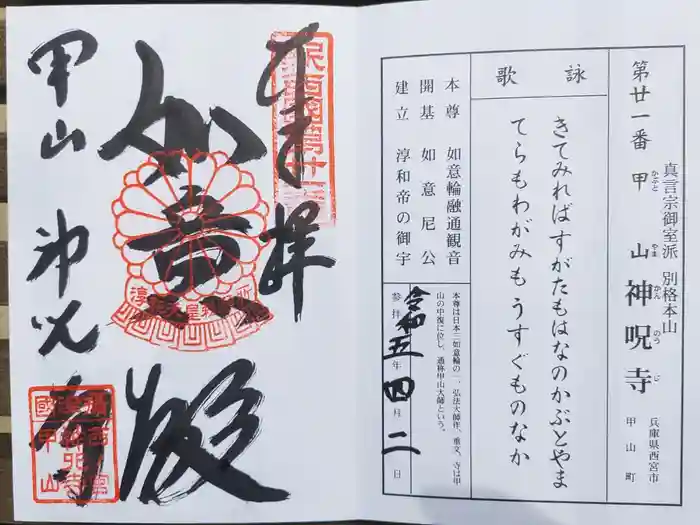 第廿一番
真言宗御室派 別格本山
甲山 神呪寺
かぶと やま かん のう じ
兵庫県西宮市
甲山町
詠歌
きてみればすがたもはなのかぶとやま
てらもわがみもうすぐものなか
本尊 如意輪融通観音
開基 如意尼公
建立 淳和帝の御宇
本尊は日本三如意輪の一、弘法大師作、重文、寺は甲
山の中復に位し、通称甲山大師という。
参拝 令和五年四月二日
奉拝
如意殿
甲山 神呪寺